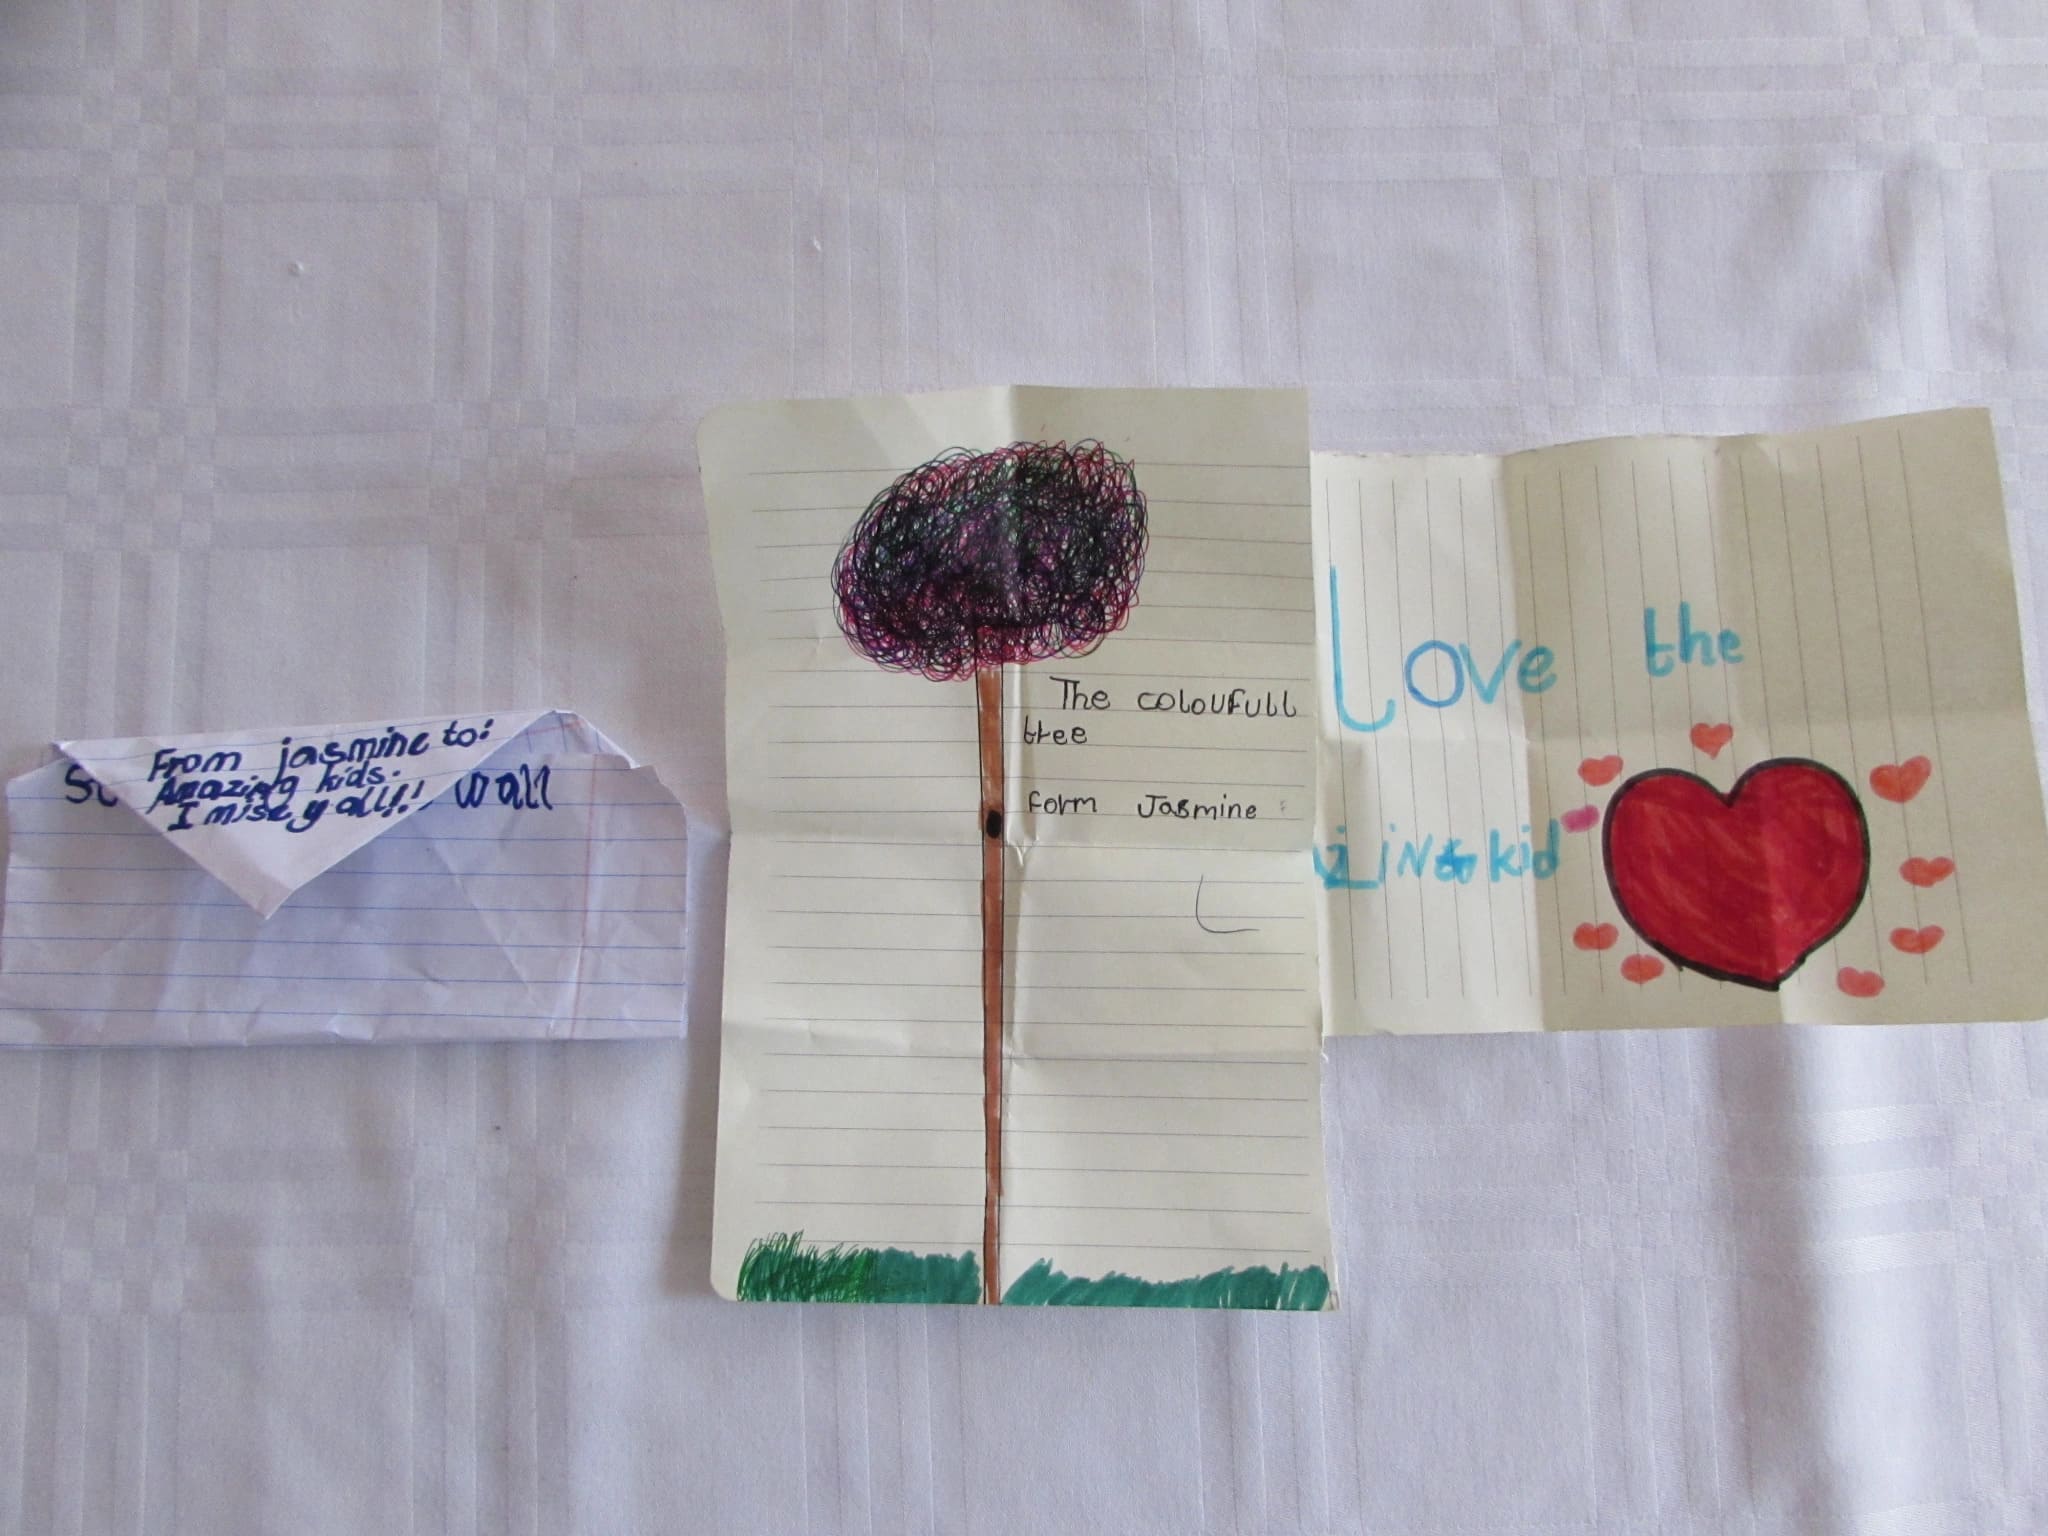 From jasmine to:
Amazing kids.
I mise y all!!!
wall
The coloufull
tree
form Jasmine
Love the
kid